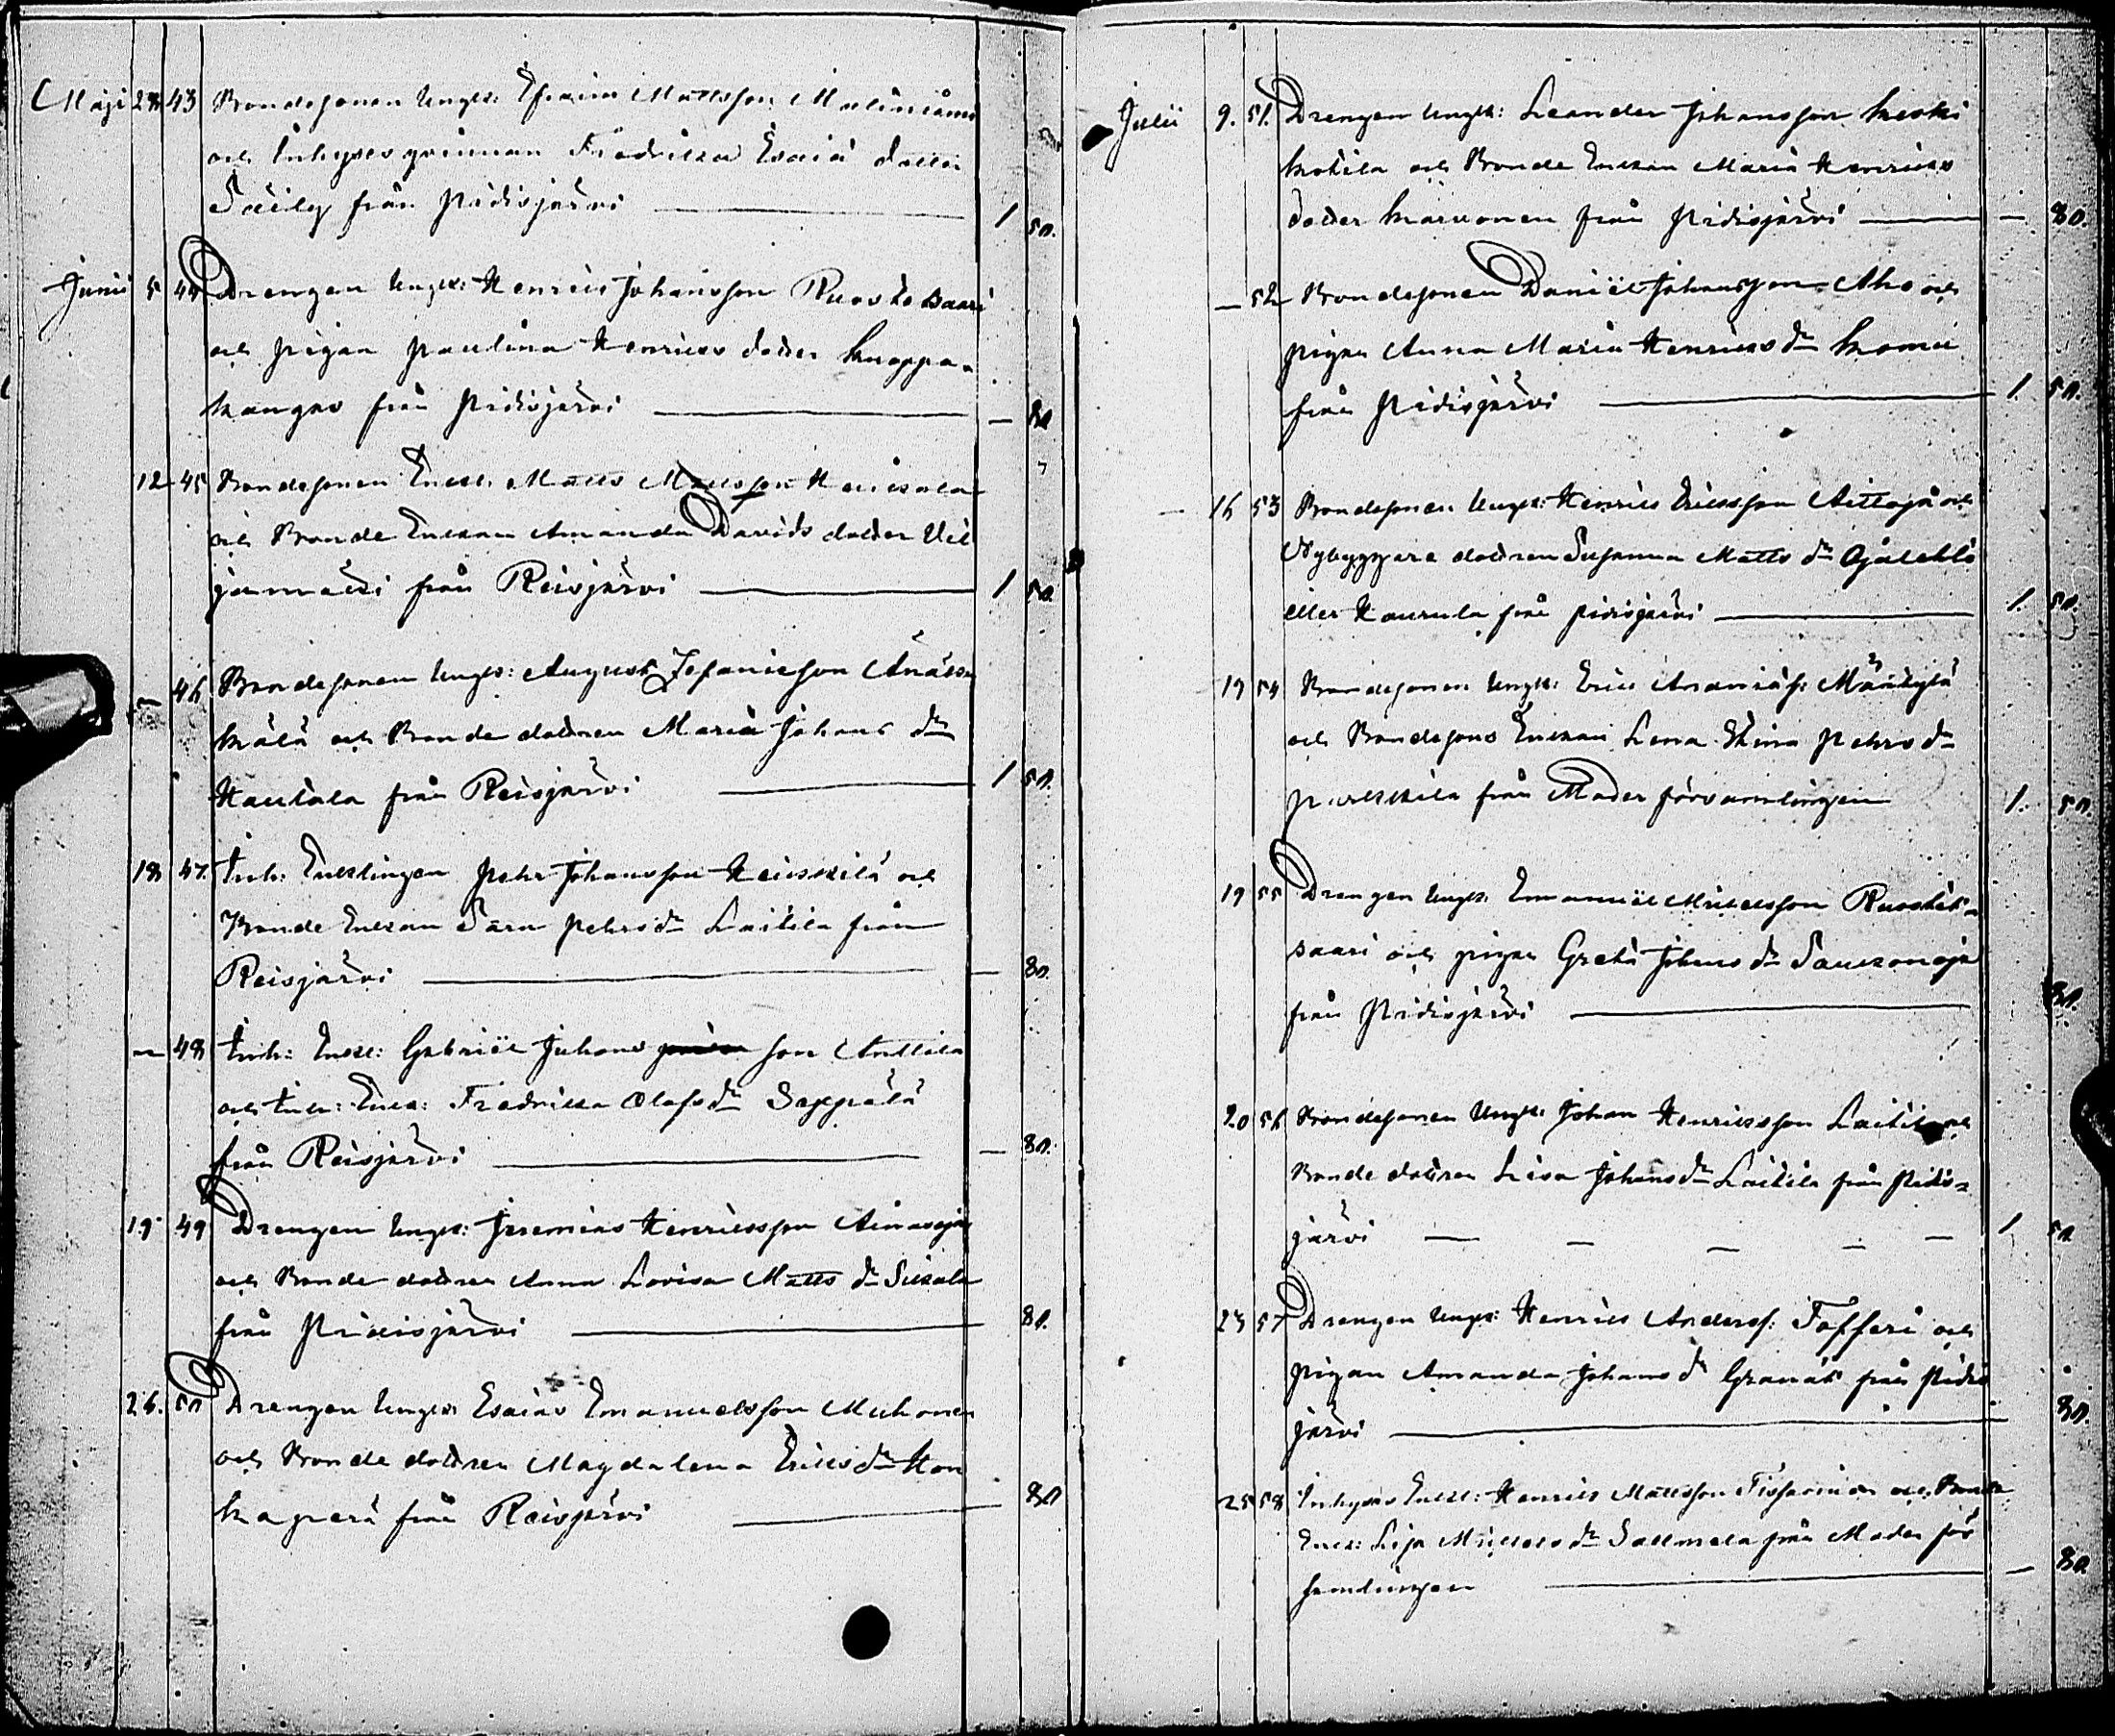 Maji 28 43 Bondesonen Ungk: Efraim Mattsson Maliniämi
och Inhyses qvinnan Fredrika Esaiä dotter
Säily från Pidisjärvi — 1 50.
Junii 5 44 Drengen Ungk: Henric Johansson Ruostesaari
och pigan Paulina Henrics dotter Knappa-
kangas från Pidisjärvi — — 80
12 45 Bondesonen Enkl: Matts Mattsson Haukala
och Bonde Enkan Amanda Davids dotter Vil
jamaa från Reisjärvi — 1 50.
— 46 Bondesonen Ungk: August Zefaniesson Änäs
kälä och Bonde dottren Maria Johans dr
Hautala från Reisjärvi — 1 50.
18 47. Inh: Enklingen Pehr Johansson Keiskilä och
Bonde Enkan Sara Pehrs dr Laitila från
Reisjärvi — — 80.
— 48 Inh: Enkl: Gabriel Johans son Anttila
och Inh: Enk: Fredrika Olofs dr Seppälä
från Reisjärvi — — 80.
19 49 Drengen Ungk: Jeremias Henricsson Ainasoja
och Bonde dottren Anna Lovisa Matts dr Sikala
från Pidisjärvi — 80.
26. 50 Drengen Ungk: Esaias Emanuelsson Muhonen
och Bonde dottren Magdalena Erics dr Hon
kaperä från Reisjärvi — 80
Julii 9. 51. Drengen Ungk: Leander Johansson Keski
kokila och Bonde Enkan Maria Henrics
dotter Karvonen från Pidisjärvi — — 80.
— 52 Bondesonen Daniel Johansson Aho och
pigan Anna Maria Henrics dr Komu
från Pidisjärvi — 1. 50.
— 16 53 Bondesonen Ungk: Henric Ericsson Aittoja och
Nybyggare dottren Susanna Matts dr Ojalehto
eller Kaurula från Pidisjärvi — 1. 50.
19 54 Bondesonen Ungk: Eric Ananias: Märkylä
och Bondesons Enkan Lena Stina Pehrs dr
Purkkila från Moder församlingen 1. 50.
19 55 Drengen Ungk: Emanuel Mickelsson Ruostet-
saari och pigan Greta Johans dr Saukonoja
från Pidisjärvi — 80.
20 56 Bondesonen Ungk: Johan Henricsson Laitila och
Bonde dottren Lisa Johans dr Laitila från Pidis-
järvi — — — — — 1 50
23 57 Drengen Ungk: Henric Anders: Tofferi och
pigan Amanda Johans dr Granat från Pidis
järvi — 80.
25 58 Inhyses Enkl: Henric Mattsson Tissarinen och Bonde
Enk: Lisa Mickels dr Sallmela från Moder för
samlingen — — 80.